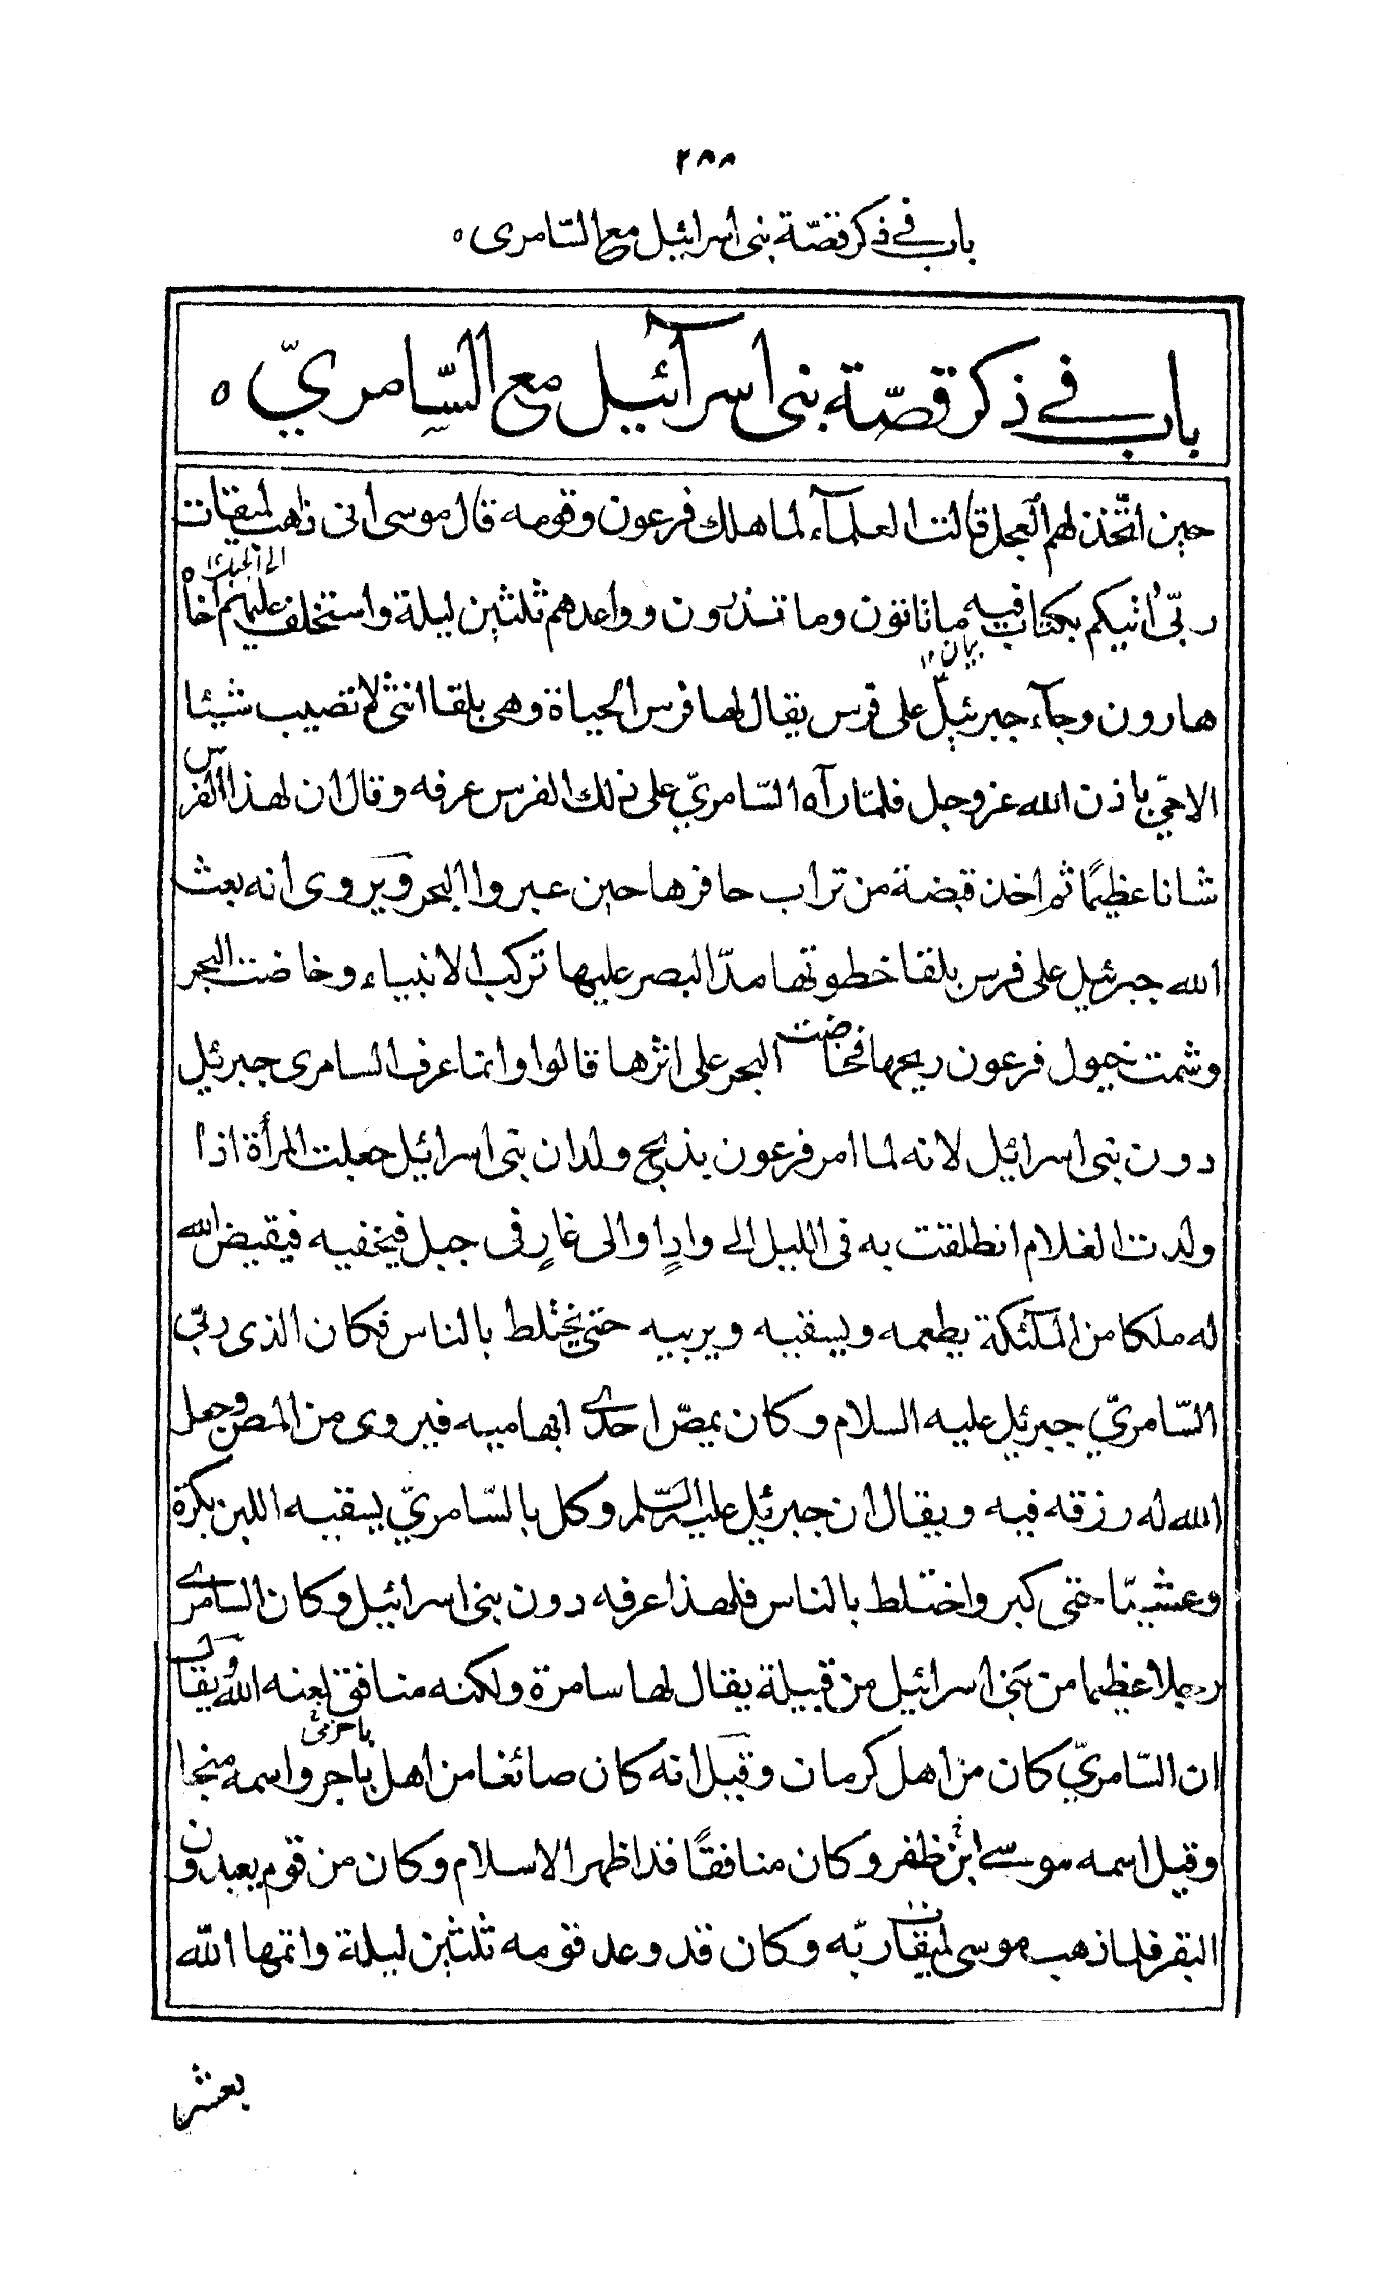 ٢٨٨
باب في ذكر قصّة بنى اسرائيل مع السّامرى ه
باب في ذكر قصّة بنى اسرآئيل مع السّامريّ ه
حين اتّخذ لهم العجل قالت العلمآء لما هلك فرعون وقومه قال موسى انى ذاهب لميقات
الى الجبل ١٢
ربّى اٰتيكم بكتاب فيه ما تاتون وما تذرون وواعدهم ثلثين ليلة واستخلف عليهم اخاه
بيان ١٢
هارون وجآء جبرئيل على فرس يقال لها فرس الحياة وهى بلقا انثى لا تصيب شيئا
الا حيّ باذن الله عز وجل فلمّا رآه السّامريّ على ذلك الفرس عرفه وقال ان لهذا الفرس
شانا عظيمًا ثم اخذ قبضة من تراب حافرها حين عبروا البحر ويروى انه بعث
الله جبرئيل على فرس بلقا خطوتها مدّ البصر عليها تركب الانبياء وخاضت البحر
وشمت خيول فرعون ريحها فخاضت البحر على اثرها قالوا وانما عرف السامرى جبرئيل
دون بنى اسرائيل لانه لما امر فرعون بذبح ولدان بنى اسرائيل جعلت المرأة اذا
ولدت الغلام انطلقت به فى الليل الى وادٍ او الى غارٍ فى جبل فيخفيه فيقيض الله
له ملكا من الملئكة يطعمه ويسقيه ويربيه حتى يختلط بالناس فكان الذى ربّى
السّامريّ جبرئيل عليه السلام وكان يمصّ احدى ابهاميه فيروى من المص وجعل
الله له رزقه فيه ويقال ان جبرئيل عليه السّلم وكل بالسّامريّ يسقيه اللبن بكرة
وعشيّا حتى كبر واختلط بالناس فلهذا عرفه دون بنى اسرائيل وكان السامرى
رجلا عظيما من بنى اسرائيل من قبيلة يقال لها سامرة ولكنه منافق لعنه الله ويقال
باجرمى
ان السّامريّ كان من اهل كرمان وقيل انه كان صائغا من اهل باجر واسمه منجا
وقيل اسمه موسى ابن ظفر وكان منافقًا قد اظهر الاسلام وكان من قوم يعبدون
البقر فلما ذهب موسى لميقات ربّه وكان قد وعد قومه ثلثين ليلة واتمها الله
بعشر